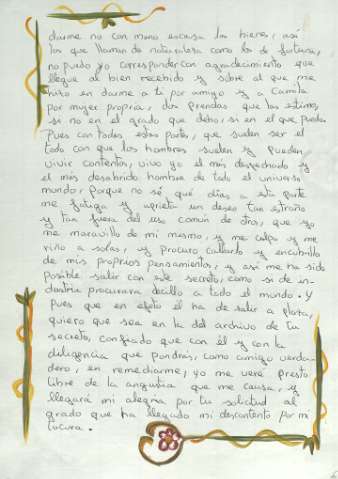 darme no con mano escasa los bienes, así
los que llaman de naturaleza como los de fortuna,
no puedo yo corresponder con agradecimiento que
llegue al bien recibido y sobre al que me
hizo en darme a ti por amigo y a Camila
por mujer propria, dos prendas que las estimo,
si no en el grado que debo, si en el que puedo.
Pues con todas estas partes, que suelen ser el
todo con que los hombres suelen y pueden
vivir contentos, vivo yo el más despechado y
el más desabrido hombre de todo el universo
mundo; porque no sé qué días a esta parte
me fatiga y aprieta un deseo tan estraño
y tan fuera del uso común de otros, que yo
me maravillo de mi mismo, y me culpo y me
riño a solas, y procuro callarlo y encubrirlo
de mis proprios pensamientos, y así me ha sido
posible salir con este secreto, como si de in-
dustria procurara decillo a todo el mundo. Y
pues que en efeto él ha de salir a plaza,
quiero que sea en la del archivo de tu
secreto, confiado que con él y con la
diligencia que pondrás, como amigo verda-
dero, en remediarme, yo me veré presto
libre de la angustia que me causa, y
llegará mi alegría por tu solicitud al
grado que ha llegado mi descontento por mi
locura.